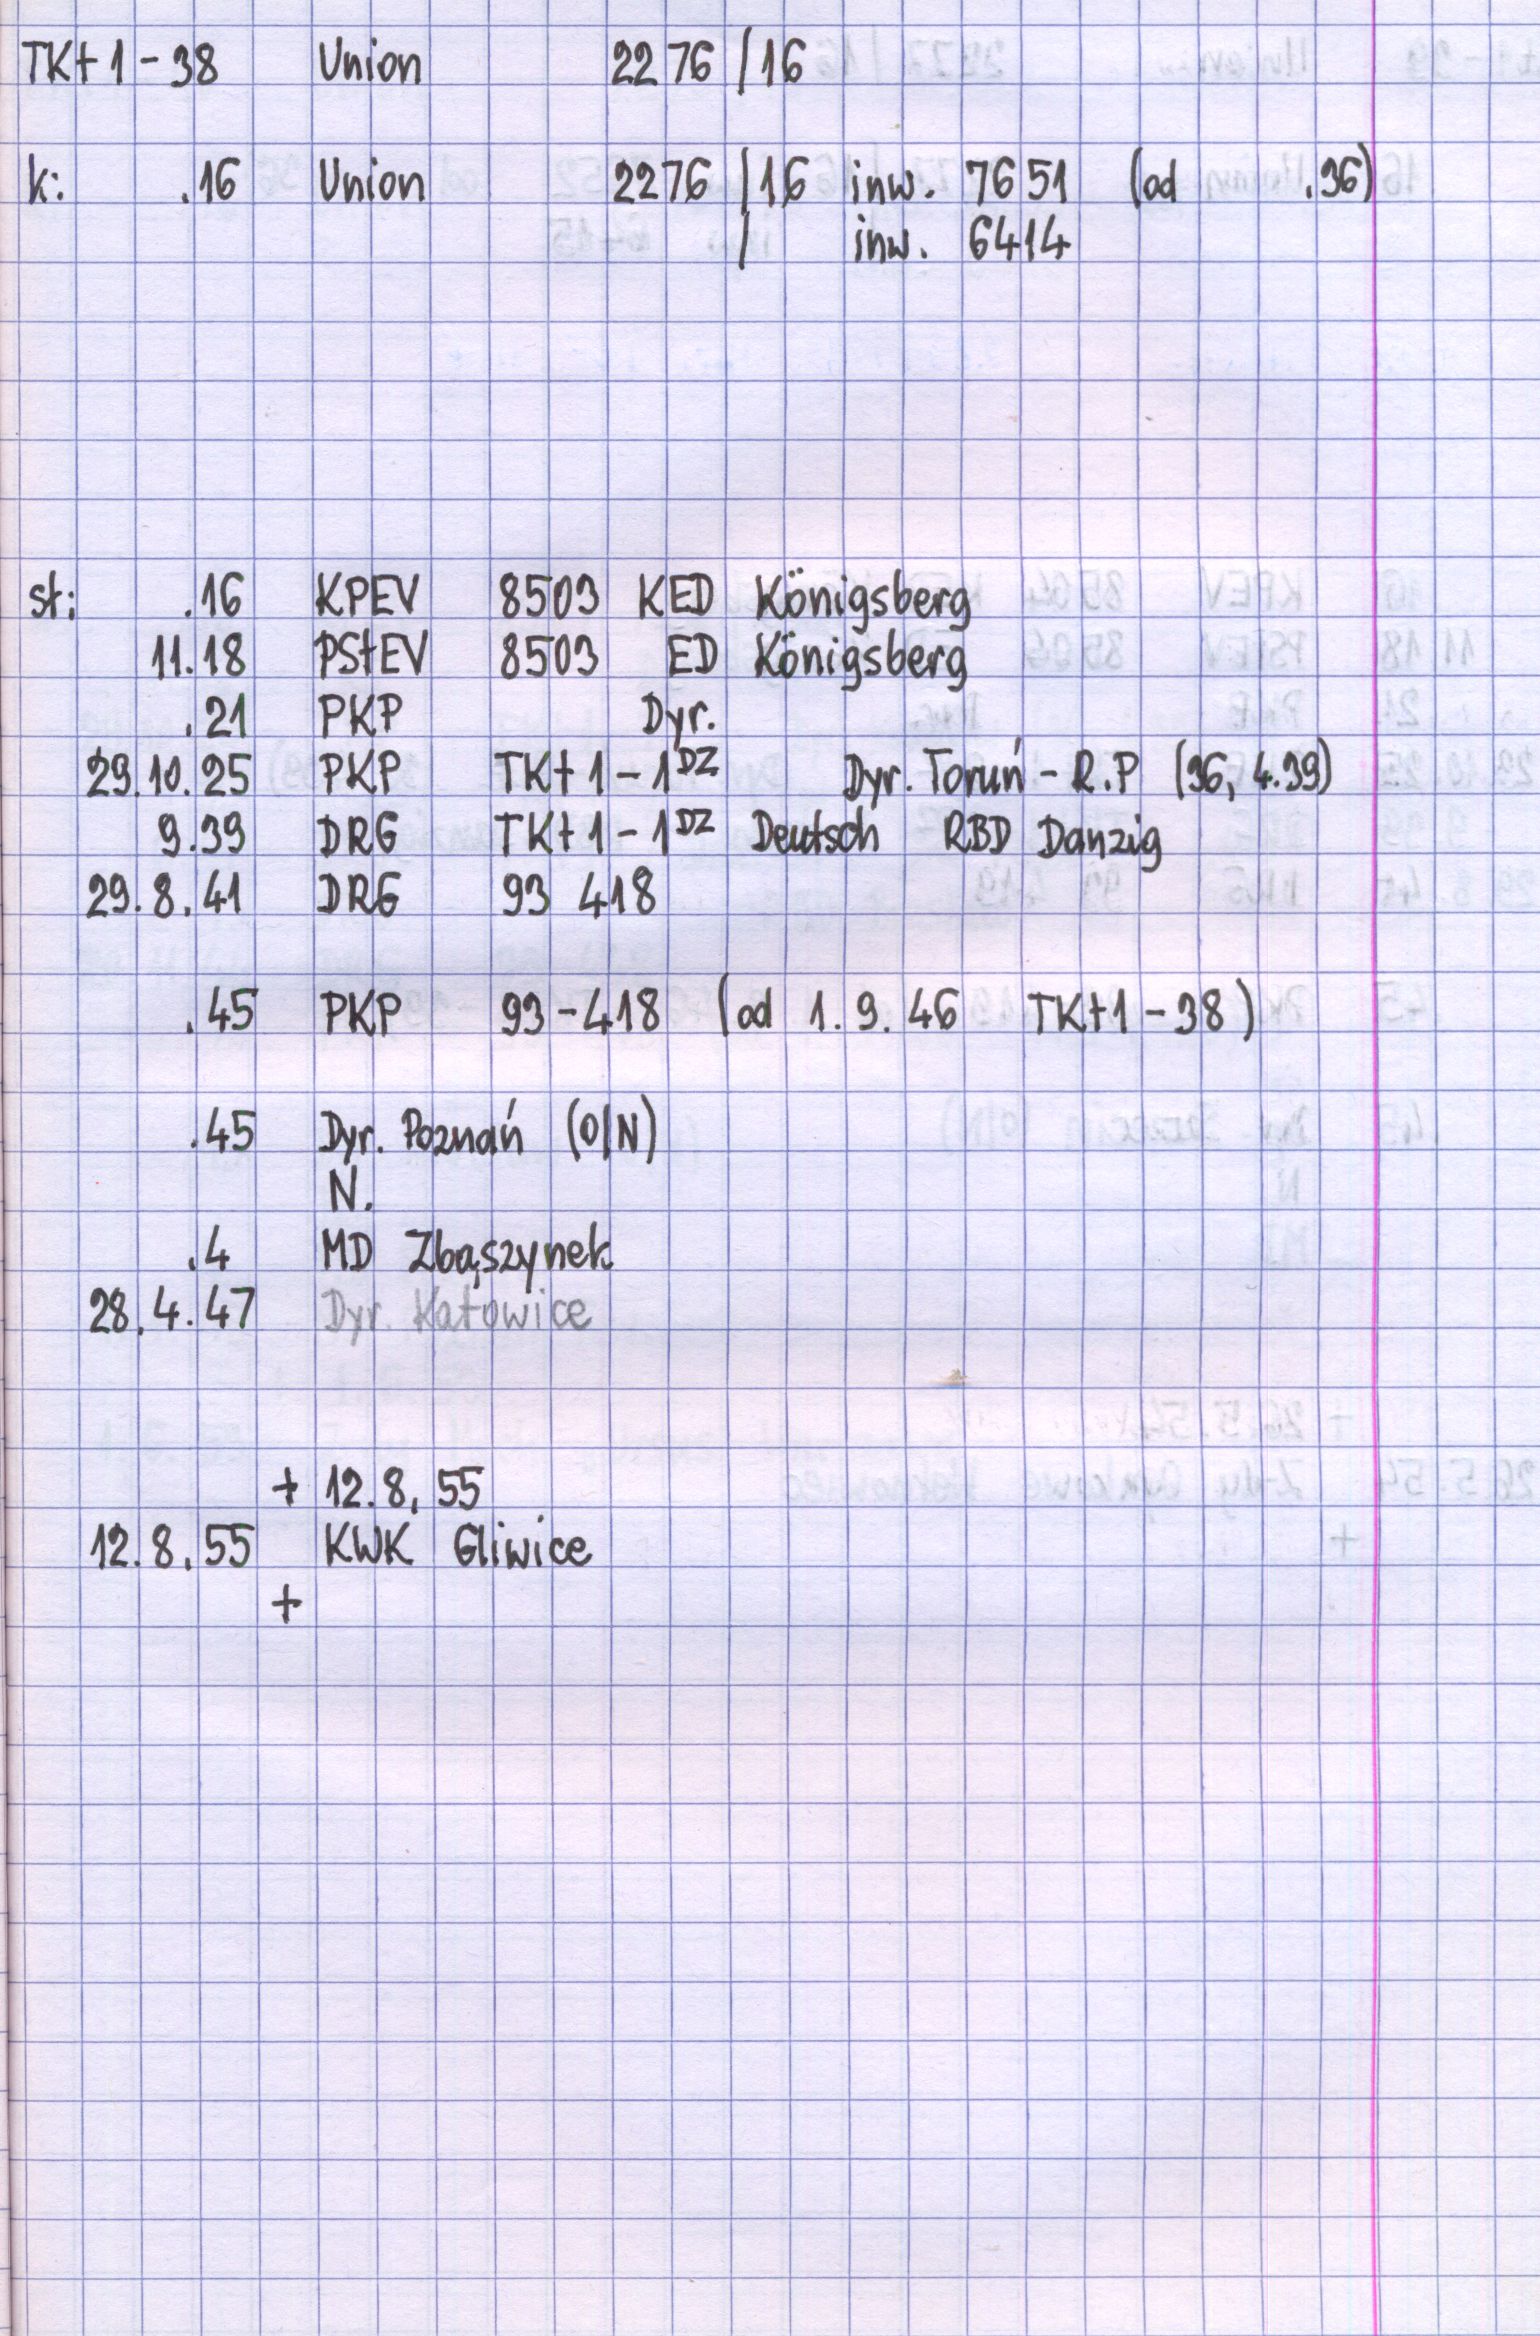 TKt 1 - 38 Union 2276 / 16
k: .16 Union 2276 / 16 inw. 7651 (od .36)
/ inw. 6414
st: .16 KPEV 8503 KED Königsberg
11.18 PStEV 8503 ED Königsberg
.21 PKP Dyr.
29.10.25 PKP TKt 1 - 1 DZ Dyr. Toruń - R.P (36, 4.39)
9.39 DRG TKt 1 - 1 DZ Deutsch RBD Danzig
29.8.41 DRG 93 418
.45 PKP 93-418 (od 1.9.46 TKt1-38)
.45 Dyr. Poznań (O/N)
N.
.4 MD Zbąszynek
28.4.47 Dyr. Katowice
+ 12.8.55
12.8.55 KWK Gliwice
+